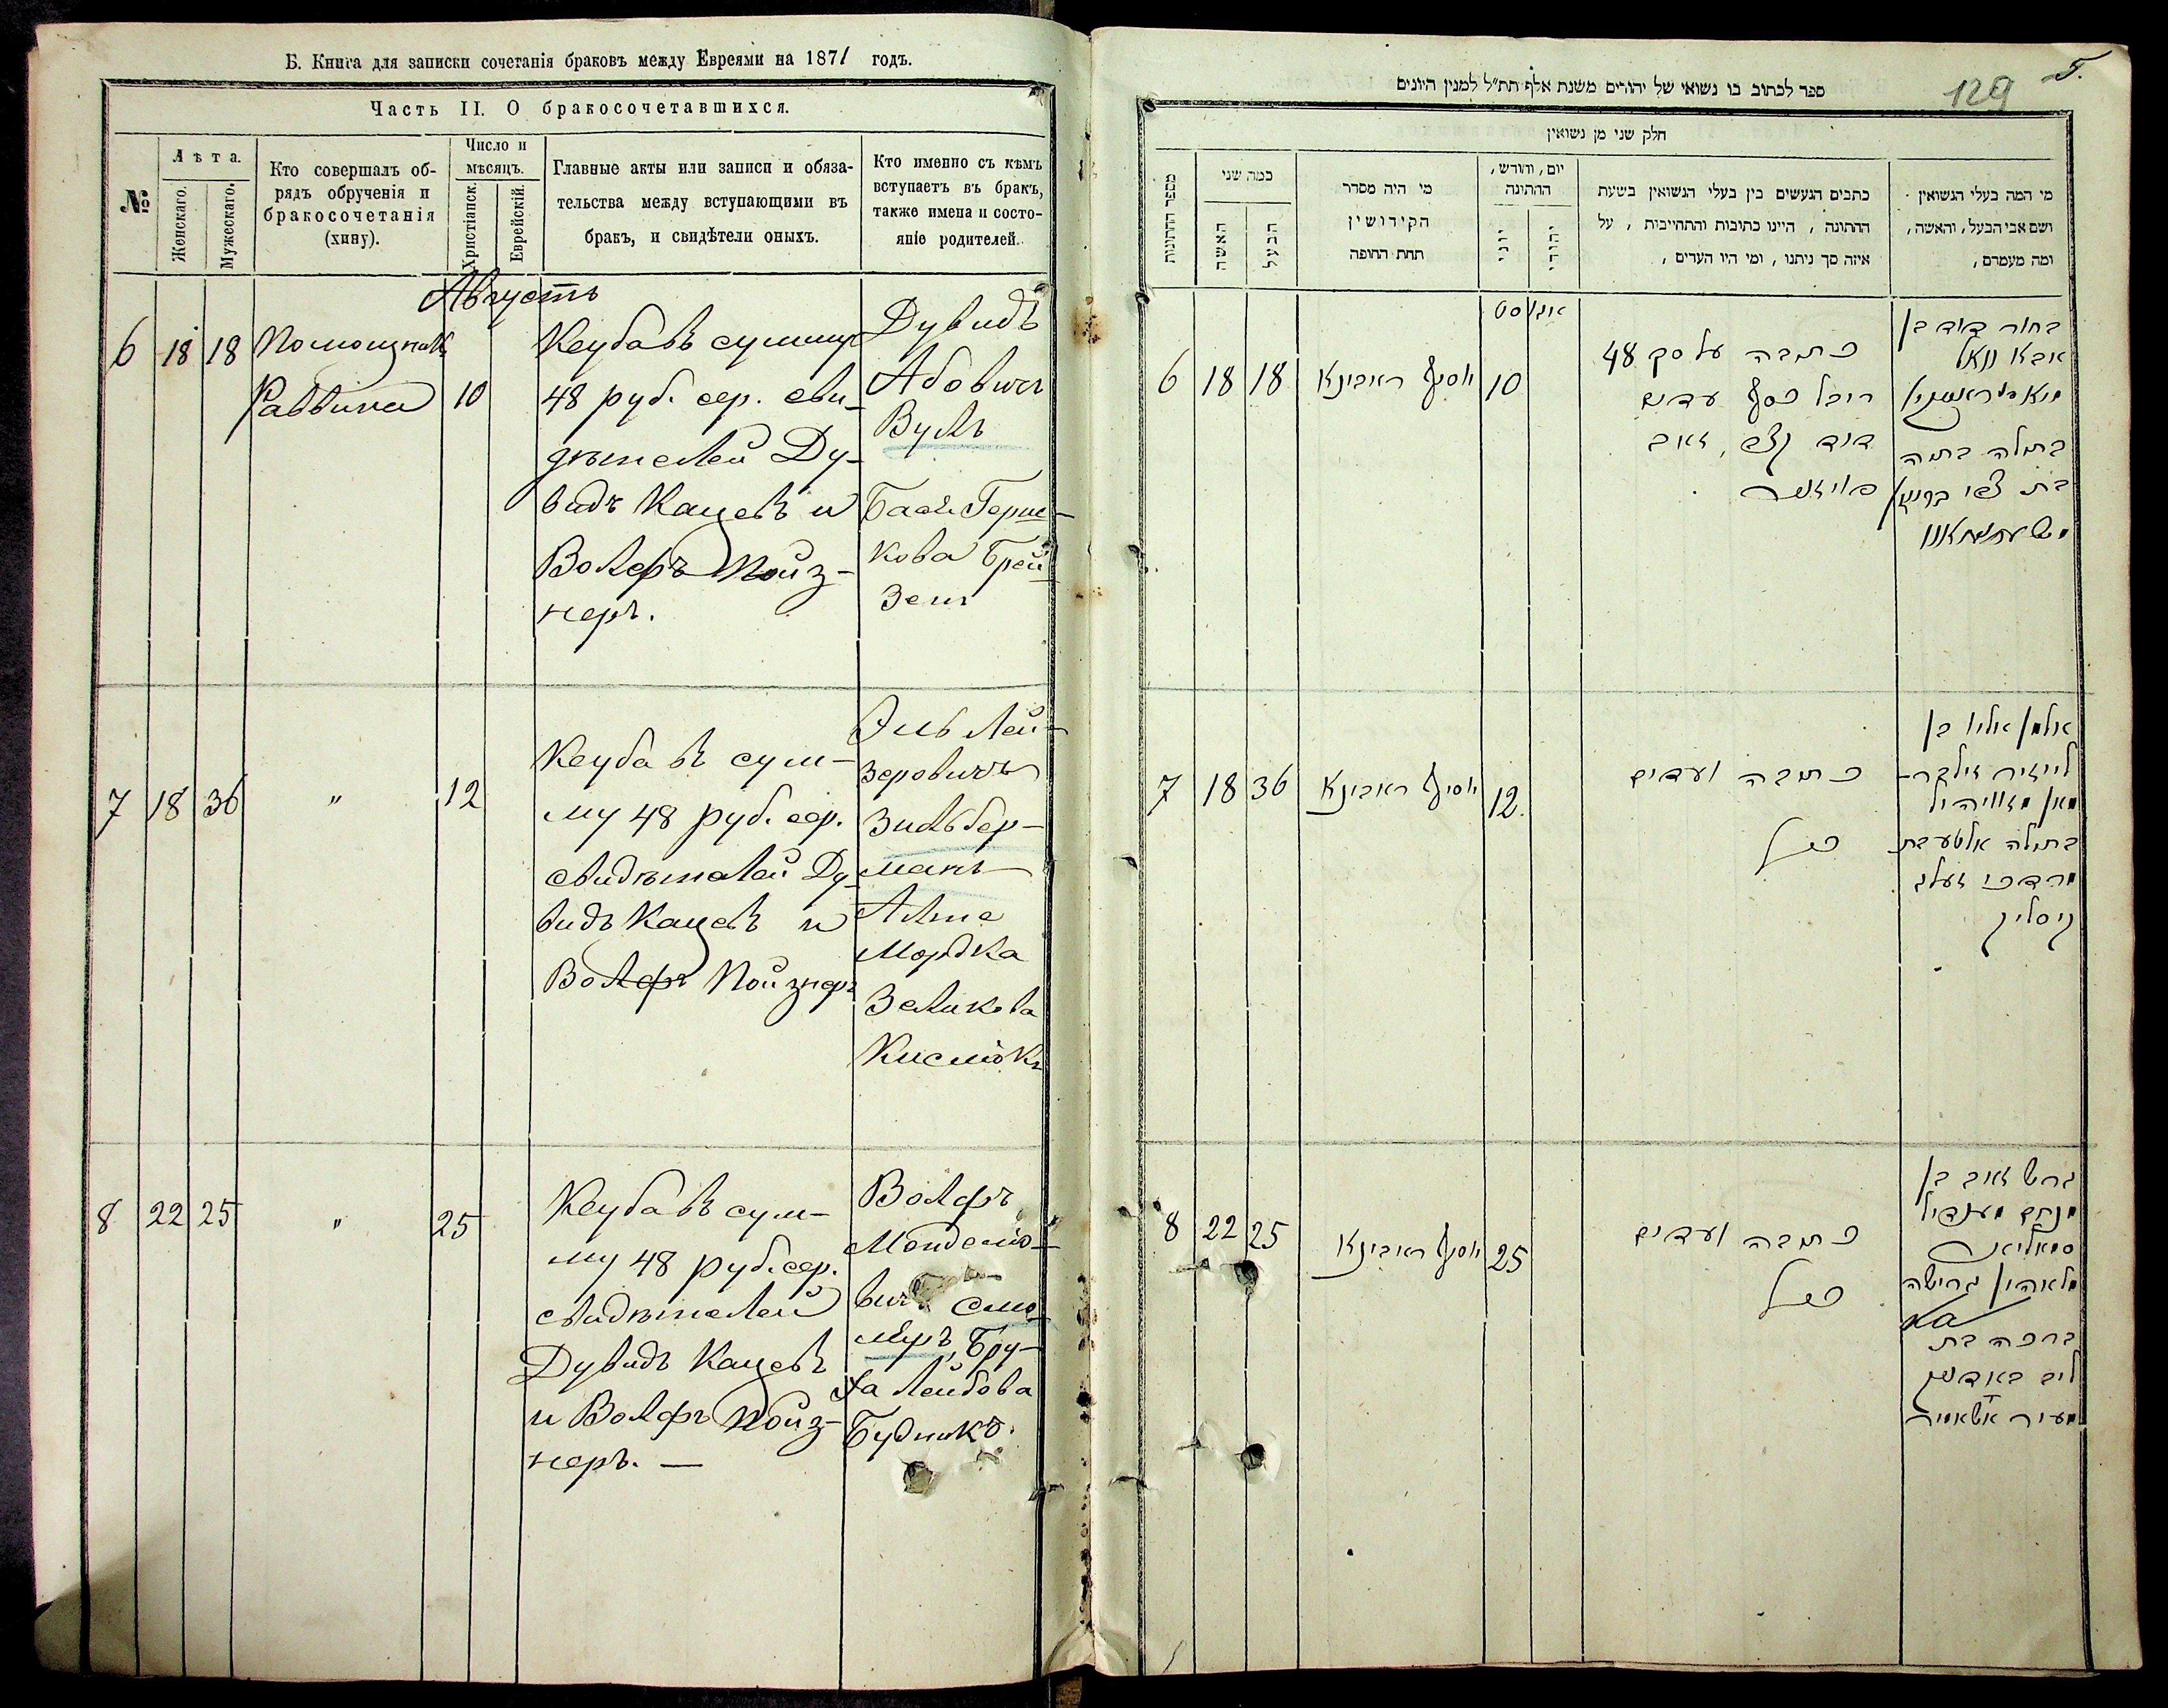 Б. Книга для записки сочетанія браковъ между Евреями на 1871 годъ.
Часть II. О бракосочетавшихся.
№
Лѣта.
Женскаго.
Мужескаго.
Кто совершалъ об-
рядъ обрученія и
бракосочетанія
(хипу).
Число и
мѣсяцъ.
Христіанск.
Еврейскій.
Главные акты или записи и обяза-
тельства между вступающими въ
бракъ, и свидѣтели оныхъ.
Кто именно съ кѣмъ
вступаетъ въ бракъ,
также имена и состо-
яніе родителей.
Августъ
6 18 18
Помощникъ
Раввина
10
Кеуба въ сумму
48 руб. сер. сви-
дѣтелей Ду-
видъ Кацевъ и
Волфъ Пойз-
неръ.
Дувидъ
Абовичъ
Вулъ
Бася Герш-
кова Брей
Зеш
7 18 36 " 12
Кеуба въ сум-
му 48 руб. сер.
свидѣтелей Ду-
видъ Кацевъ и
Волфъ Пойзнеръ
Эль Лей-
зеровичъ
Зильбер-
манъ
Алте
Мордка
Зеликова
Кислюкъ
8 22 25 " 25
Кеуба въ сум-
му 48 руб. сер.
свидѣтелей
Дувидъ Кацевъ
и Волфъ Пойз-
неръ. —
Волфъ
Менделю-
вичъ
Бру-
ха Лейбова
Будникъ.
129
5.
ספר לכתוב בו נשואי של יהודים משנת אלף תת״ל למנין היונים
חלק שני מן נשואין
מספר החתונות
כמה שני
האשה
הבעל
מי היה מסדר
הקידושין
תחת החופה
יום, וחודש,
החתונה
יוני
יהודי
כתבים הנעשים בין בעלי הנשואין בשעת
החתונה, היינו כתובות והתחייבות, על
איזה סך ניתנו, ומי היו העדים,
מי המה בעלי הנשואין
ושם אבי הבעל, והאשה,
ומה מעמדם,
אוגוסט
6 18 18
יוסף ראבינא
10
כתובה על סך 48
רובל כסף עדים
דוד קצב, זאב
פויזנער
בחור דוד בן
אבא וואל
בתולה בתיה
בת צבי
7 18 36
יוסף ראבינא
12.
כתובה ועדים
כנ״ל
אלמן אליו בן
לייזיר זילבר-
מאן
בתולה אלטע בת
מרדכי זעליג
קיסליק
8 22 25
יוסף ראבינא
25
כתובה ועדים
כנ״ל
גרוש זאב בן
מנחם מענדיל
גרושה
ברכה בת
ליב באדניק